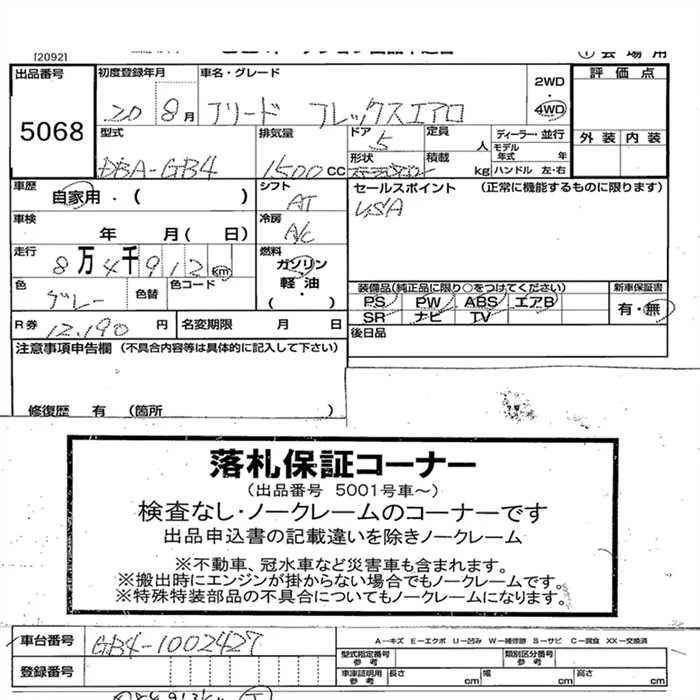 [2092]
① 会場用
出品番号 初度登録年月 車名・グレード 2WD・4WD 評価点
5068 20 8月 フリード フレックスエアロ
外装 内装
型式 排気量 ドア 5 定員 人 ディーラー・並行
DBA-GB4 1500CC 形状 積載 kg モデル年式 年
ハンドル 左・右
車歴 自家用・( ) シフト AT セールスポイント (正常に機能するものに限ります)
車検 年 月(日) 冷房 A/C
走行 8万4千912km 燃料 ガソリン・軽油・( )
色 グレー 色替 色コード
装備品(純正品に限り○をつけてください) 新車保証書
PS PW ABS エアB 有・無
SR ナビ TV
R券 12,190円 名変期限 月 日
後日品
注意事項申告欄 (不具合内容等は具体的に記入して下さい)
修復歴 有 (箇所 )
落札保証コーナー
(出品番号 5001号車～)
検査なし・ノークレームのコーナーです
出品申込書の記載違いを除きノークレーム
※不動車、冠水車など災害車も含まれます。
※搬出時にエンジンが掛からない場合でもノークレームです。
※特殊特装部品の不具合についてもノークレームになります。
車台番号 GB4-1002427
A－キズ E－エクボ U－凹み W－補修跡 S－サビ C－腐食 XX－交換済
登録番号
型式指定番号 参考 類別区分番号 参考
車庫証明用 参考 長さ cm 幅 cm 高さ cm